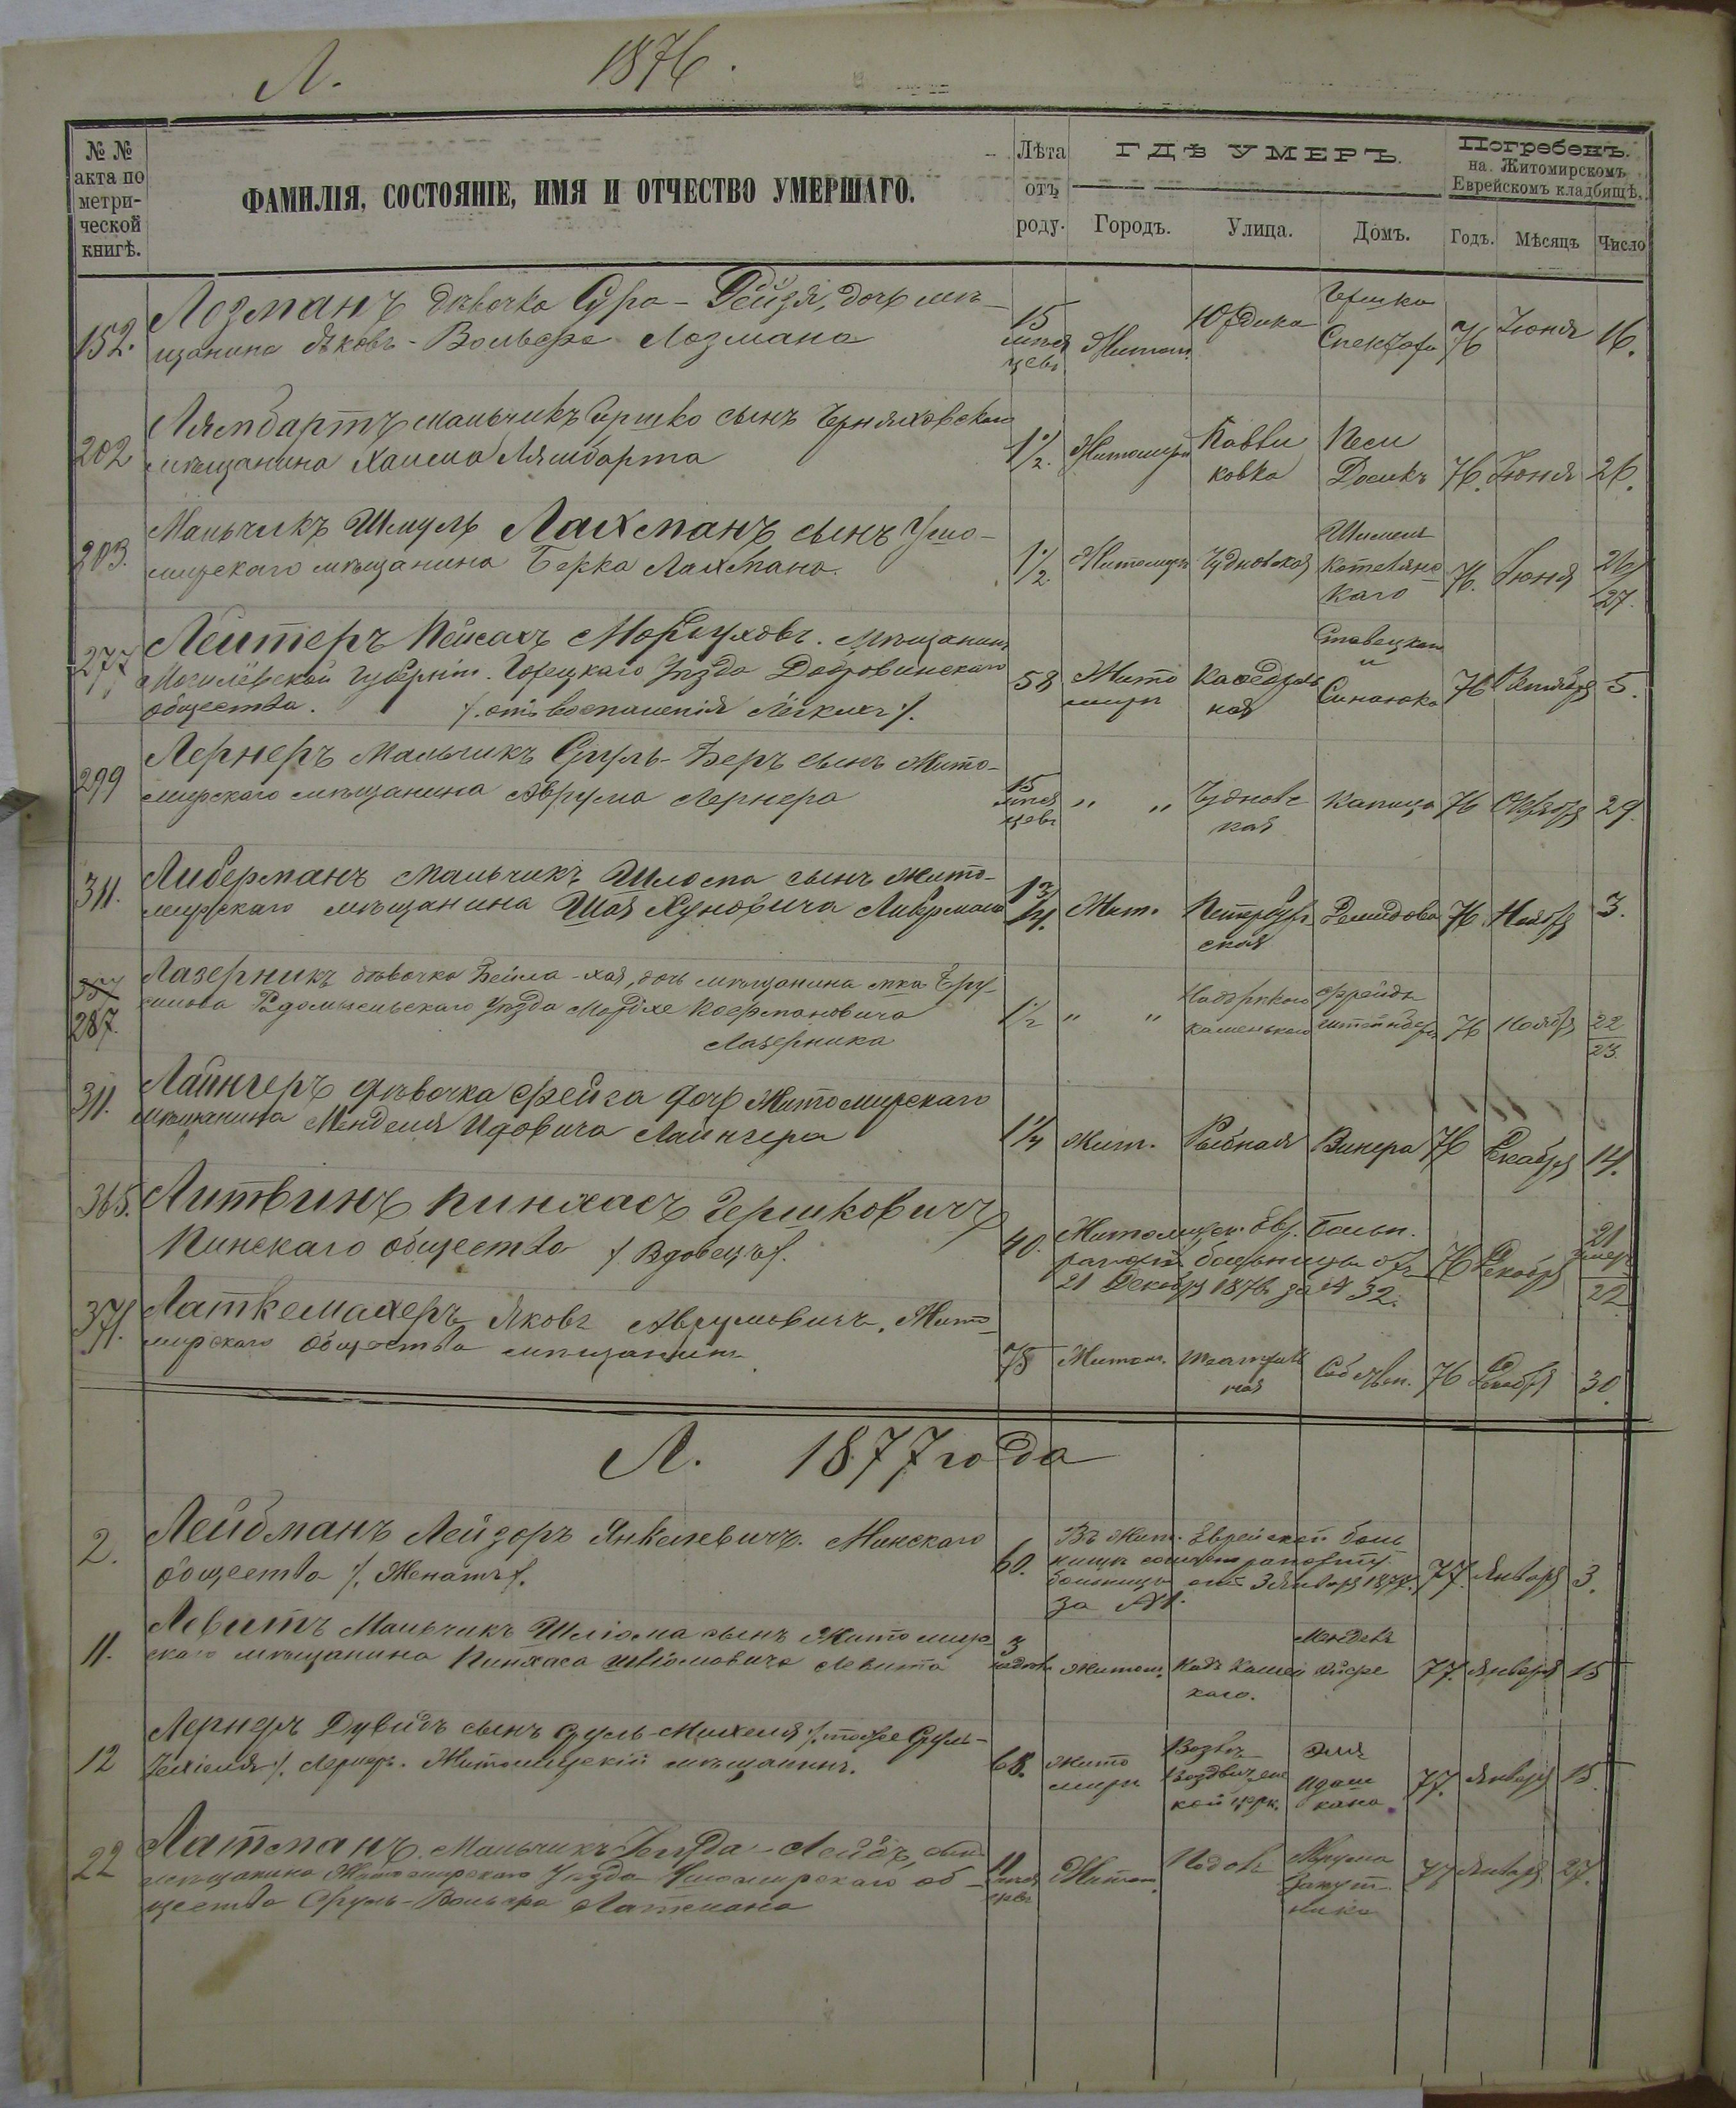 Л. 1876.
№ №
акта по
метри-
ческой
книгѣ.
ФАМИЛІЯ, СОСТОЯНІЕ, ИМЯ И ОТЧЕСТВО УМЕРШАГО.
Лѣта
отъ
роду.
ГДѢ УМЕРЪ.
Городъ. Улица. Домъ.
Погребенъ.
на Житомирскомъ
Еврейскомъ кладбищѣ.
Годъ. Мѣсяцъ Число
152. Лозманъ дѣвочка Сура-Рейзя, дочь мѣ-
щанина Яковъ-Вольфа Лозмана
15 мѣся
цевъ
Житом. Юрдика
Гершка
Спектора
76 Іюня 16.
202 Лямбартъ мальчикъ Гершко сынъ Черняховскаго
мѣщанина Хаима Лямбарта
1 1/2. Житомиръ
Павли
ковка
Песи
76. Іюня 26.
203. Мальчикъ Шмуль Лахманъ сынъ Ушо-
мирскаго мѣщанина Берка Лахмана.
1 1/2. Житомиръ Чудновская
Котелянс
каго
76. Іюня 26/
27.
277 Лейтеръ Пейсахъ Мордуховъ. Мѣщанинъ
Могилёвской Губерніи. Горецкаго Уѣзда Добровинскаго
общества. /. отъ воспаленія лёгкихъ /.
58 Жито
миръ
Каѳедраль
ная
Ставецкаго
и
Синаюка
76 5.
299 Лернеръ мальчикъ Сруль-Беръ сынъ Жито-
мирскаго мѣщанина Аврума Лернера
15
мѣся
цевъ
" "
Чудновс
кая
Капица 76 Октября 29.
311. Либерманъ мальчикъ Шлома сынъ Жито-
мирскаго мѣщанина Шая Хуновича Либермана
1 3/4. Жит.
Петербург
ская
Демидова 76 Ноября 3.
357
287. Лазерникъ дѣвочка Бейла-хая, дочь мѣщанина мка Бру-
силова Радомысльскаго Уѣзда Мордхе
Лазерника
1/2 " "
76 Ноября 22
23.
311. Лайнгеръ дѣвочка Фейга дочь Житомирскаго
мѣщанина Менделя Идовича Лайнгера
1 1/4 Жит. Рыбная Винера 76 Декабря 14.
365. Литвинъ Пинхасъ Гершковичъ
Пинскаго общества /. Вдовецъ /.
40. Житомирск. Евр. больн.
больницы отъ
21 Декабря 1876 за № 32.
76 Декабря 21
умеръ
22
371. Латкемахеръ Яковъ Аврумовичъ. Жито-
мирскаго общества мѣщанинъ
75 Житом.
Театраль
ная
Собствен. 76 Декабря 30.
Л. 1877 года
2. Лейбманъ Лейзоръ Янкелевичъ. Минскаго
общества /. Женатъ /.
60.
Въ Жит. Еврейской боль
ницѣ согласно рапорту.
больницы отъ 3 Января 1877.
за №1.
77. Января 3.
11. Левитъ мальчикъ Шліома сынъ Житомир
скаго мѣщанина Пинхаса Шліомовича Левита
3
годовъ
Житом.
Мендель
77. Января 15
12 Лернеръ Дувидъ сынъ Сруль-Михеля /. тоже Сруль-
Іехіеля /. Лернеръ. Житомирскій мѣщанинъ.
68. Жито
миръ
Воздвиженс
кой церк.
77. Января 15.
22 Латманъ. Мальчикъ Іегуда-Лейбъ, сынъ
мѣщанина Житомирскаго Уѣзда Ушомирскаго об-
щества Сруль-Вольфа Латмана
11
мѣся
цевъ
Житом. Подолъ
Аврума
77 Января 27.